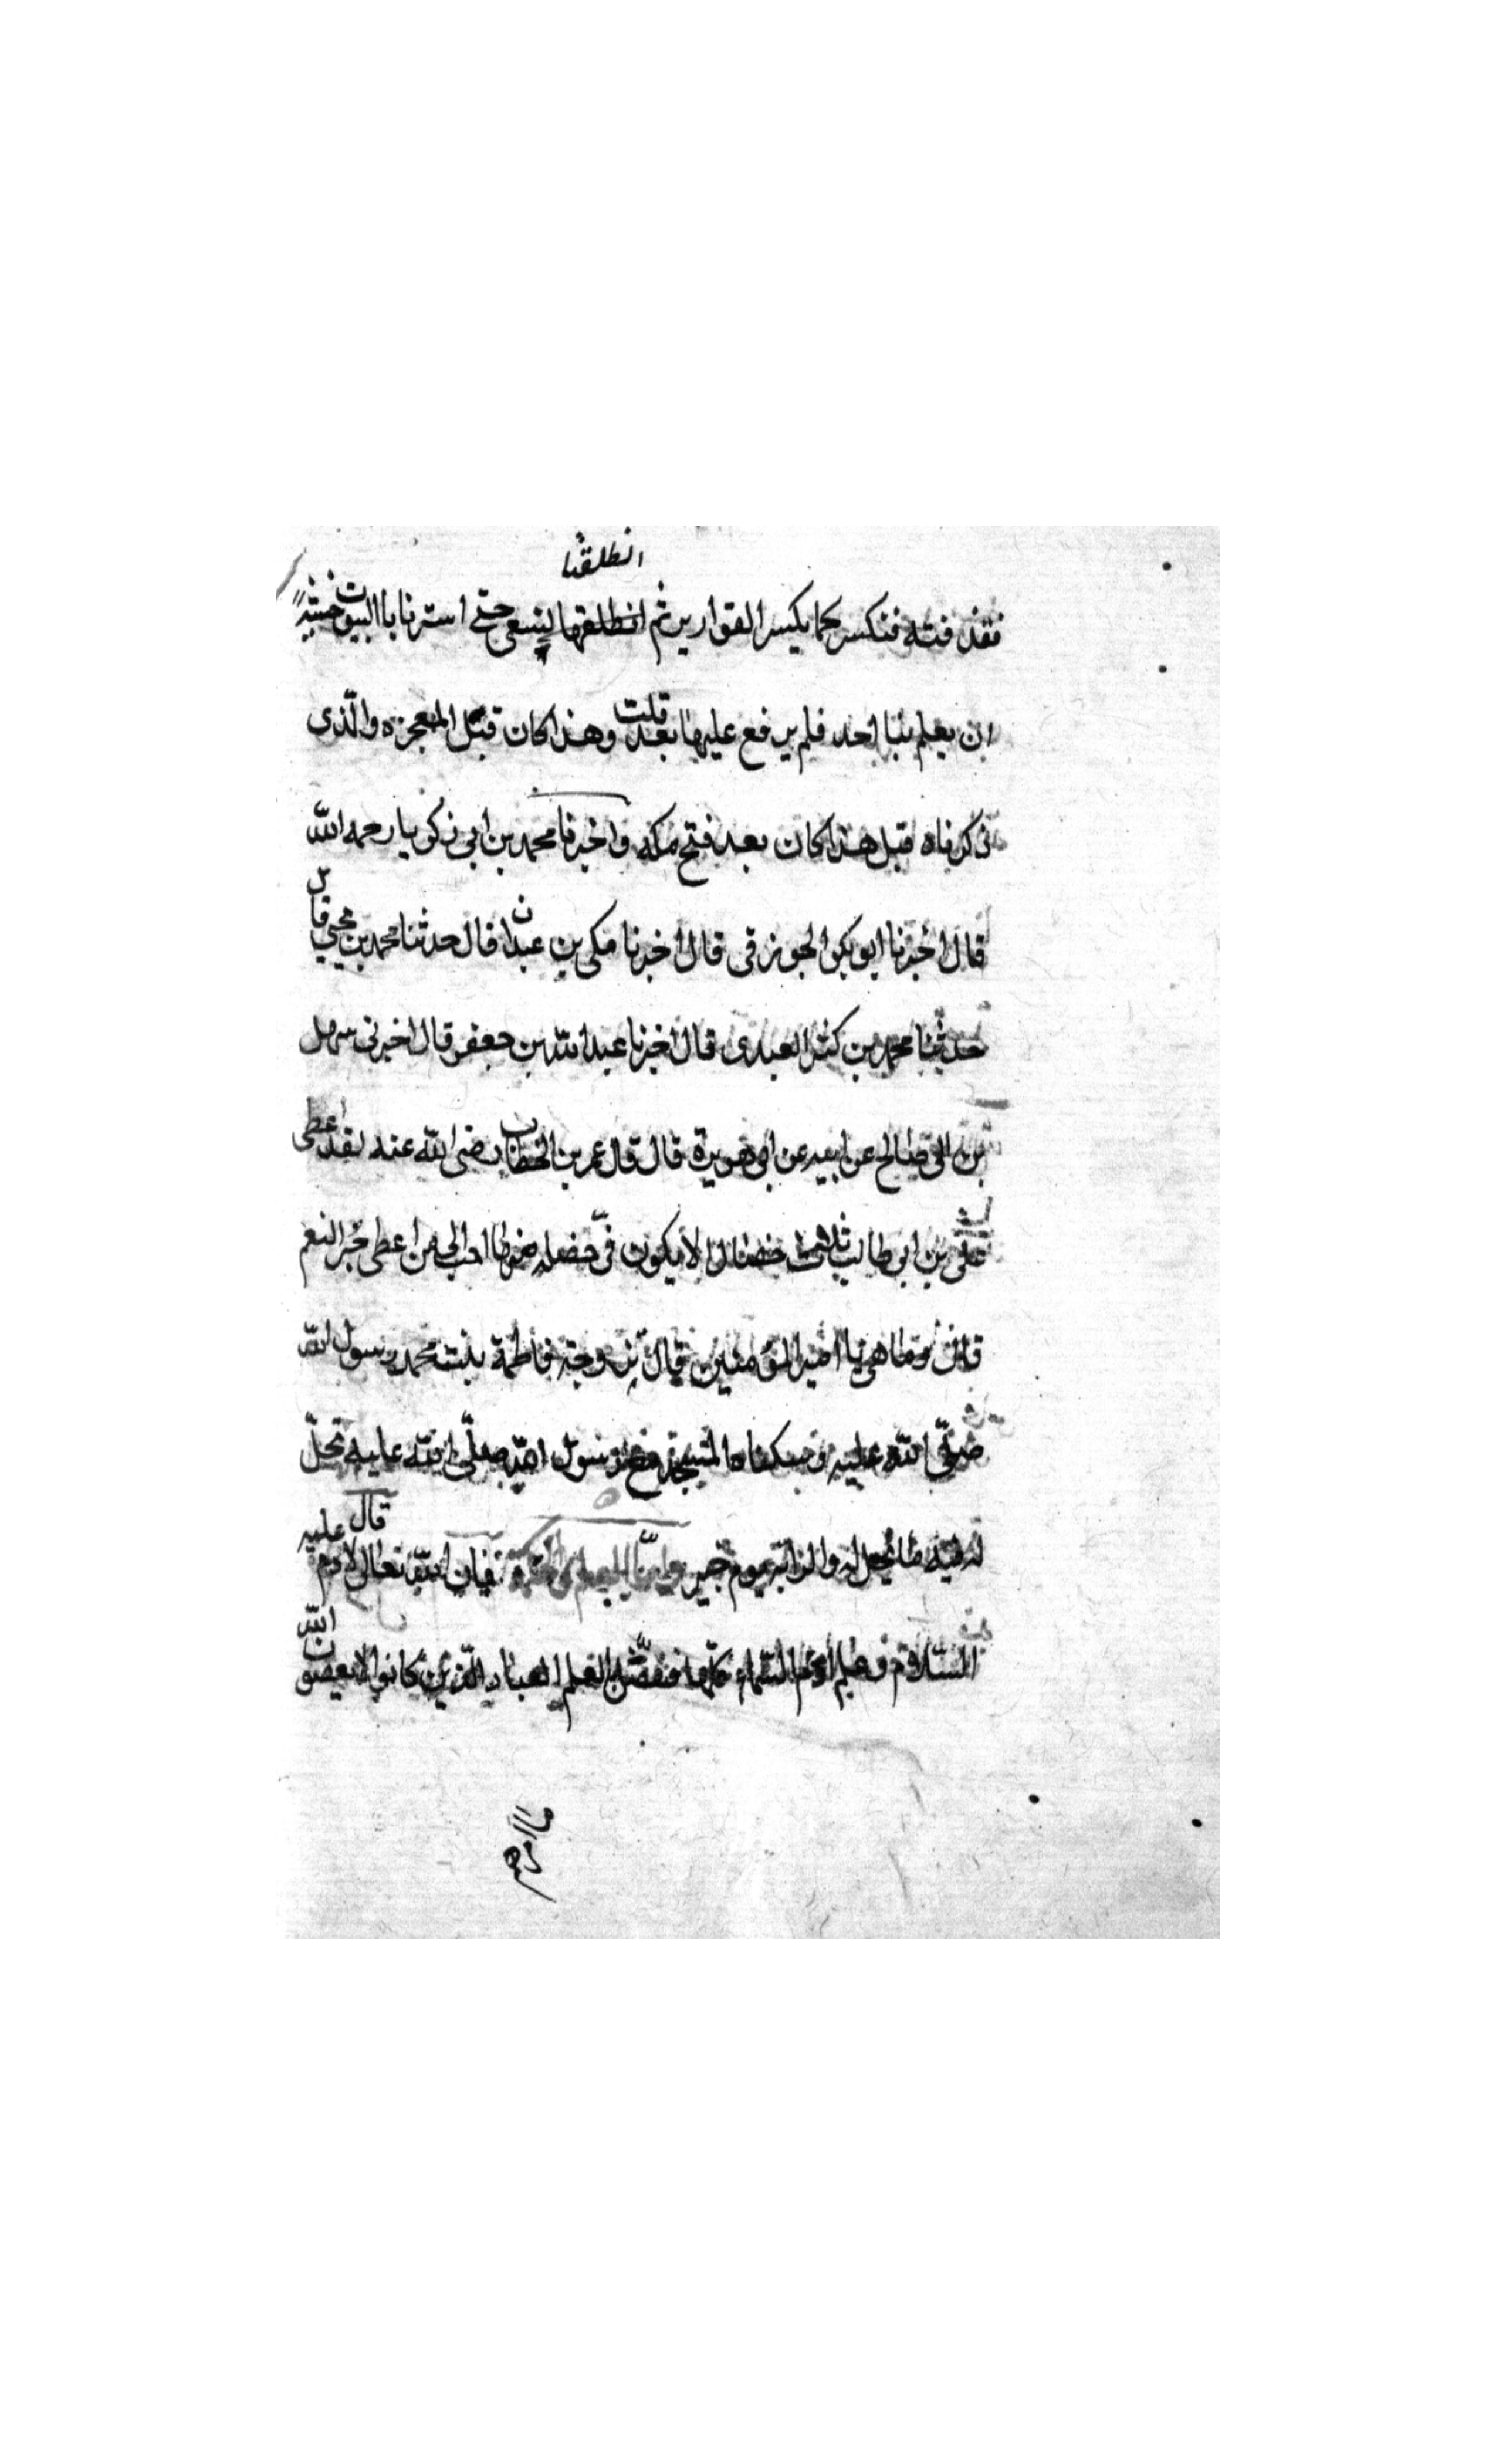 انطلقنا
فقذفته فتكسر كما يكسر القوارير ثم انطلقها لنسعى حتى استرنا باالبيوت خشية
ان يعلم بنا احد فلم يرفع عليها بعد قلت وهذا كان قبل المعجزه والّذى
ذكرناه قبل هذا كان بعد فتح مكه واخبرنا محمد بن ابى زكريا رحمه الله
قال اخبرنا ابو بكر الجوزقى قال اخبرنا مكى بن عبدان قال حدثنا محمد بن يحيى قال
حدثنا محمد بن كثير العبدى قال اخبرنا عبد الله بن جعفر قال اخبرنى سهل
بن ابى صالح عن ابيه عن ابى هريرة قال قال عمر بن الخطاب رضى الله عنه لقد اعطى
على بن ابى طالب ثلث خصال لا يكون فىّ خصله منها احب الى من اعطى حمر النعم
قالو وما هى يا امير المؤمنين قال تزوجته فاطمة بنت محمد رسول الله
صلّى الله عليه وسكناه المسجد مع رسول الله صلّى الله عليه تحلّ
له فيه ما يحل له والراية يوم خيبر فان الله تعالى قال لادم عليه
السّلام وعلم ادم السماء كلّها ففضّل العلم العباد الّذين كانوا لا يعصون الله
ما امرهم